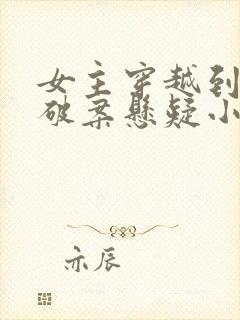 女主穿越到
破案悬疑小
亦辰